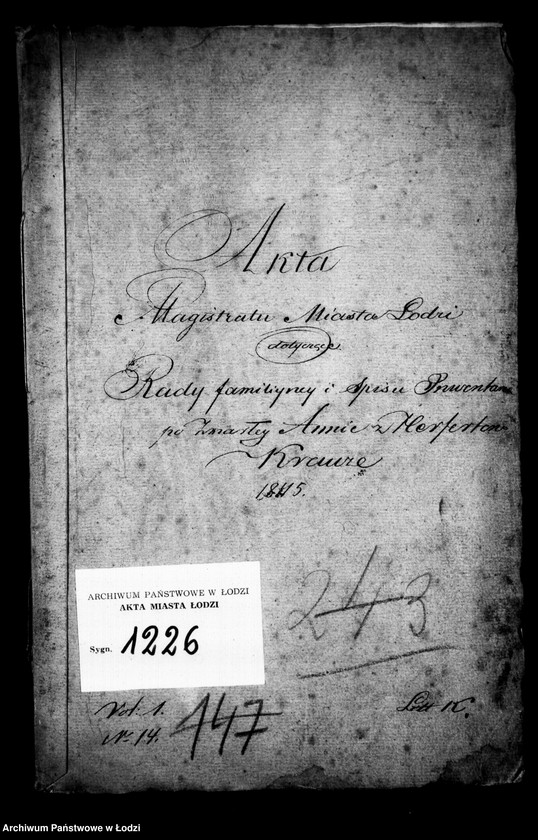 Akta
Magistratu Miasta Łodzi
dotyczące
Rady familiyney i Spisu Inwentarza
po zmarłey Annie z Herfertów
Krauze
1845.
243
ARCHIWUM PAŃSTWOWE W ŁODZI
AKTA MIASTA ŁODZI
Sygn. 1226
Vol. 1.
№ 14.
147
Litt K.
Archiwum Państwowe w Łodzi
Archiwum Państwowe w Łodzi